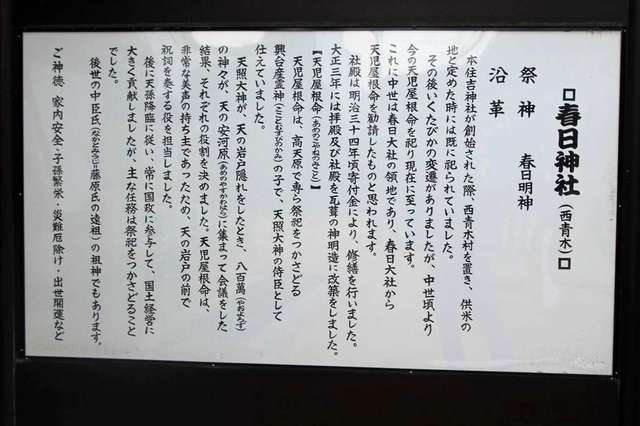 □春日神社(西青木)□
祭神　春日明神
沿革
本住吉神社が創始された際、西青木村を置き、供米の
地と定めた時には既に祀られていました。
その後いくたびかの変遷がありましたが、中世頃より
今の天児屋根命を祀り現在に至っています。
これに中世は春日大社の領地であり、春日大社から
天児屋根命を勧請したものと思われます。
社殿は明治三十四年頃寄付金により、修繕を行いました。
大正三年には拝殿及び社殿を瓦葺の神明造に改築をしました。
【天児屋根命(あめのこやねのみこと)】
天児屋根命は、高天原で専ら祭祀をつかさどる
興台産霊神(こごとむすびのかみ)の子で、天照大神の侍臣として
仕えていました。
天照大神が、天の岩戸隠れをしたとき、八百萬(やおよろず)
の神々が、天の安河原(あめのやすかわら)に集まって会議をした
結果、それぞれの役割を決めました。天児屋根命は、
非常な美声の持ち主であったため、天の岩戸の前で
祝詞を奏する役を担当しました。
後に天孫降臨に従い、常に国政に参与して、国土経営に
大きく貢献しましたが、主な任務は祭祀をつかさどること
でした。
後世の中臣氏(なかとみうじ・藤原氏の遠祖)の祖神でもあります。
ご神徳　家内安全・子孫繁栄・災難厄除け・出世開運など